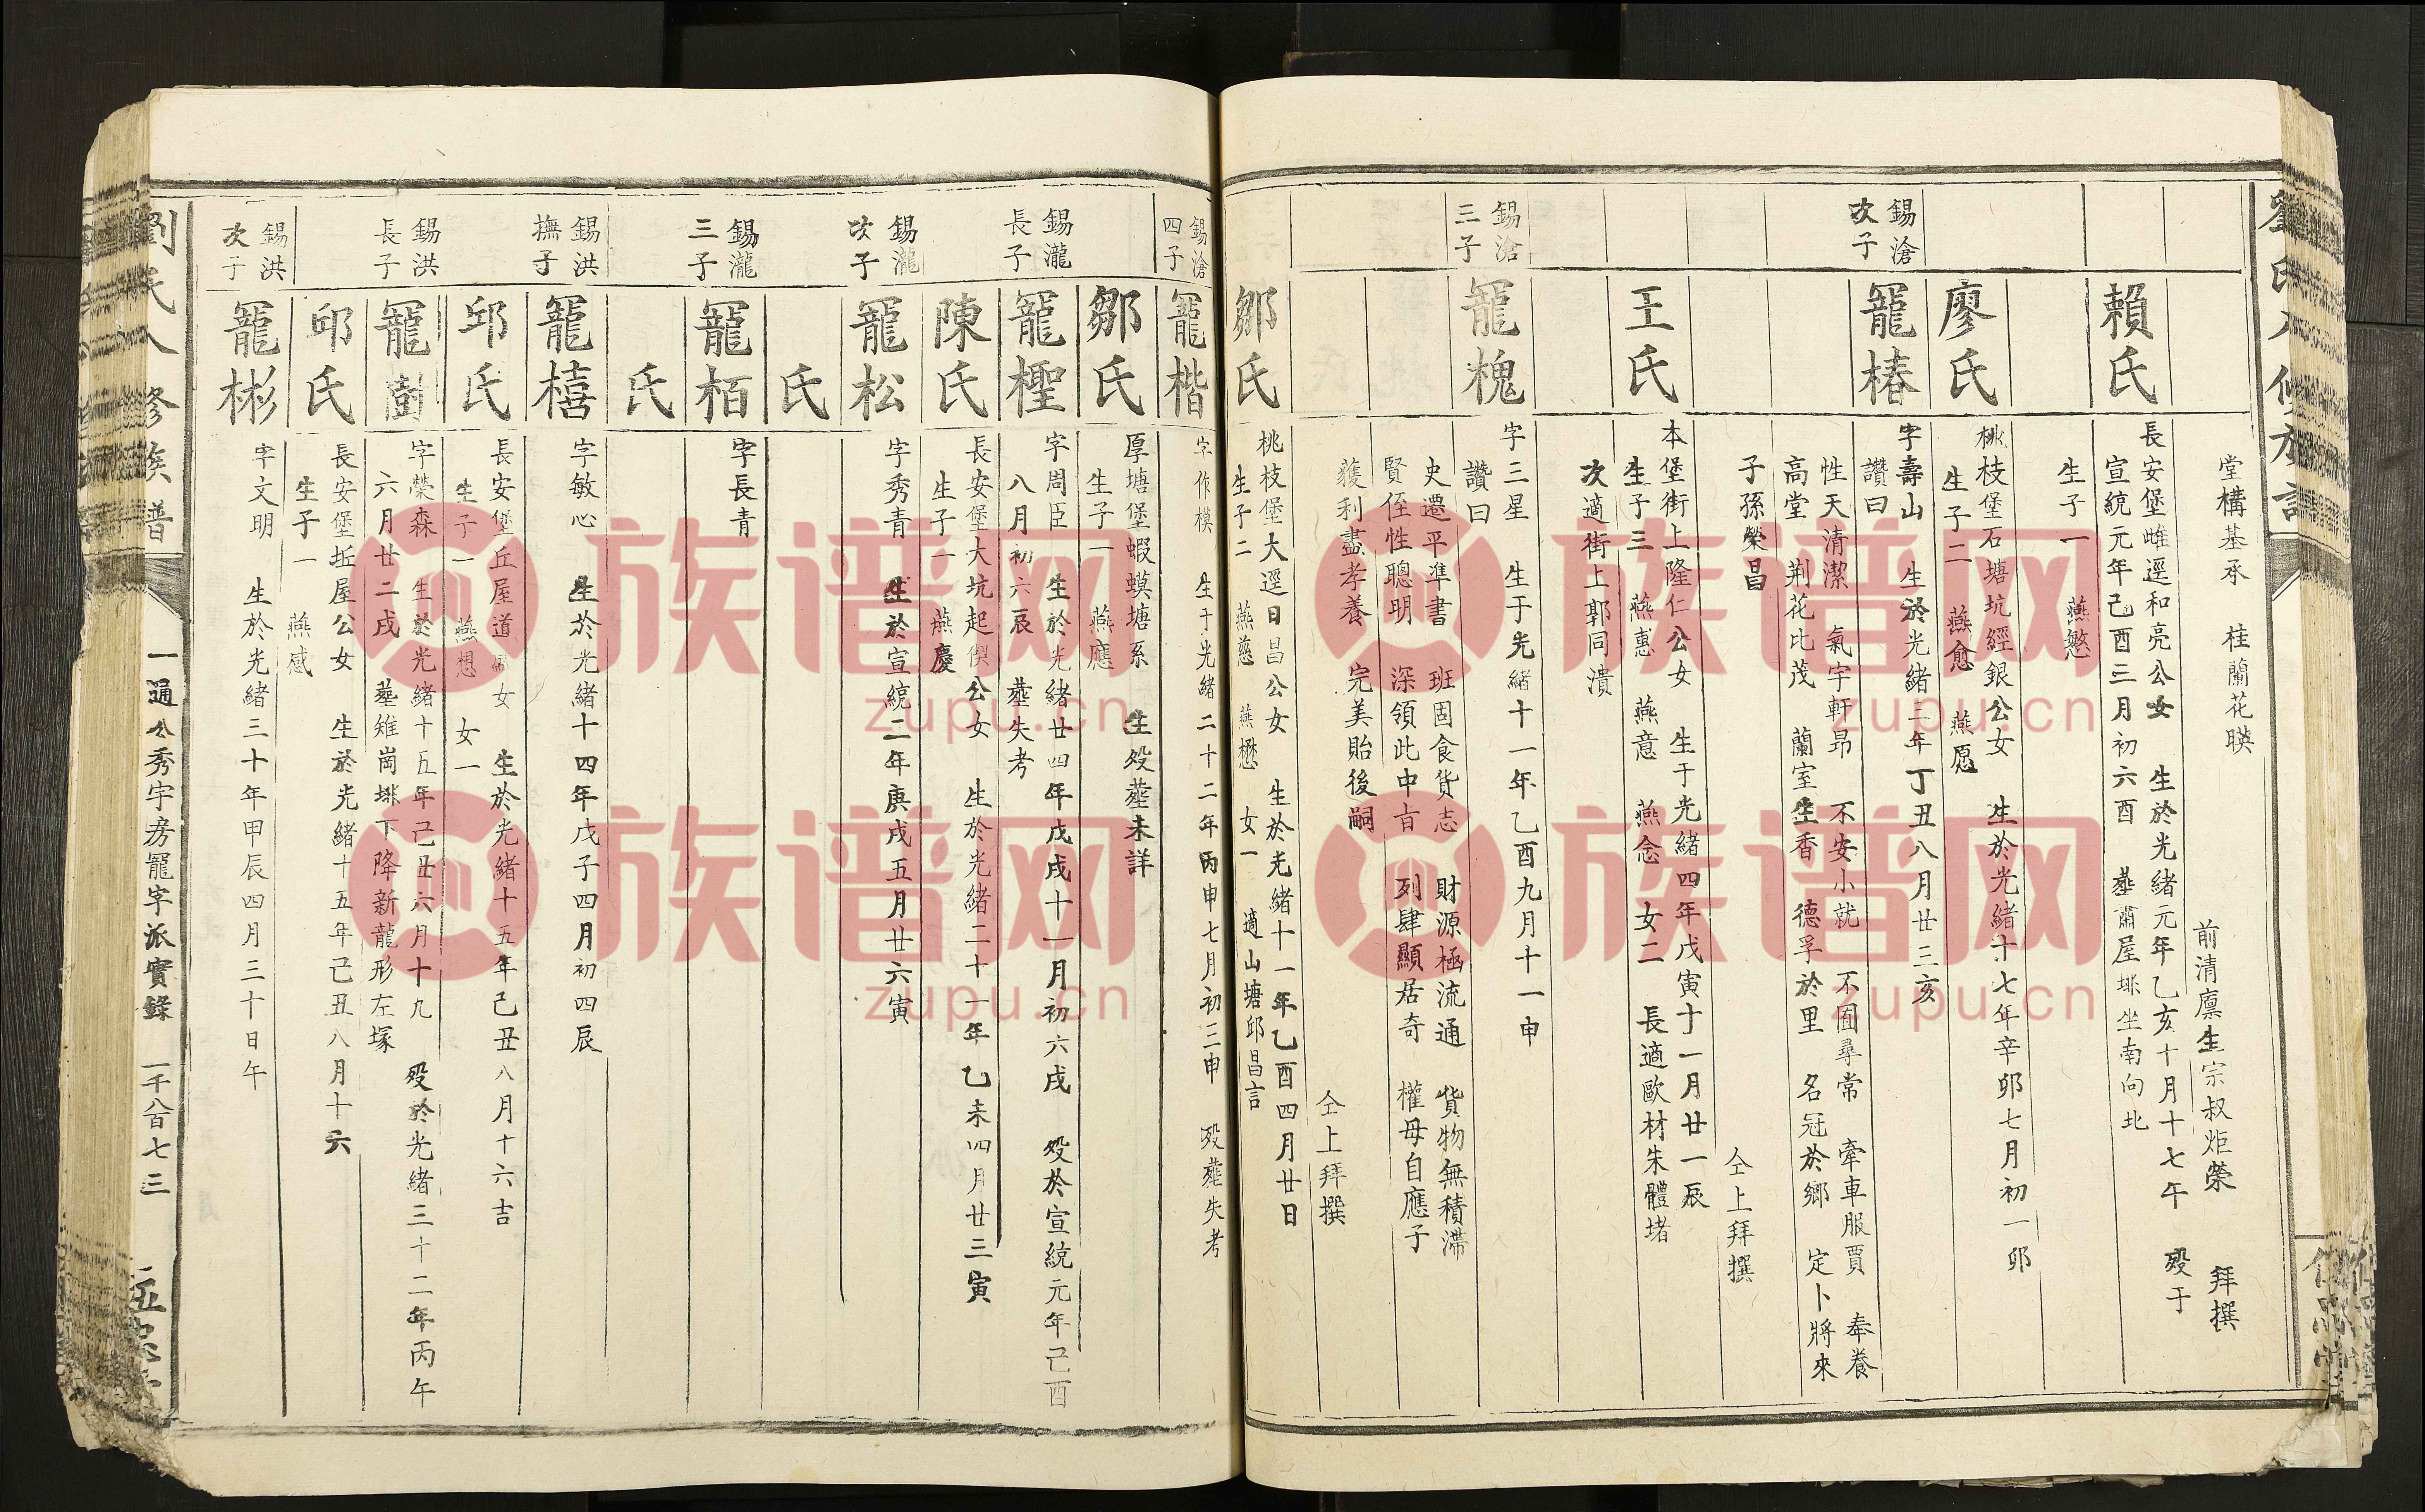 劉氏八修族譜
堂構基承 桂蘭花暎
前清廪生宗叔炬榮 拜撰
賴氏
長安堡雌逕和亮公女 生於光緒元年乙亥十月十七午 殁于
宣統元年己酉三月初六酉 塟蕭屋排坐南向北
生子一 燕慜
廖氏
桃枝堡石塘坑經銀公女 生於光緒十七年辛卯七月初一卯
生子二 燕愈 燕愿
錫滄
次子
寵椿
字壽山 生於光緒三年丁丑八月廿三亥
讚曰
性天清潔 氣宇軒昂 不安小就 不囿尋常 牽車服賈 奉養
高堂 荆花比茂 蘭室生香 德孚於里 名冠於鄉 定卜將來
子孫榮昌
仝上拜撰
王氏
本堡街上隆仁公女 生于光緒四年戊寅十一月廿一辰
生子三 燕惠 燕意 燕念 女二 長適歐材朱體堵
次適街上郭同濆
錫滄
三子
寵槐
字三星 生于光緒十一年乙酉九月十一申
讚曰
史遷平準書 班固食貨志 財源極流通 貨物無積滯
賢侄性聰明 深領此中旨 列肆顯居奇 權母自應子
獲利盡孝養 完美貽後嗣
仝上拜撰
鄒氏
桃枝堡大逕日昌公女 生於光緒十一年乙酉四月廿日
生子二 燕慈 燕懋 女一 適山塘邱昌言
錫滄
四子
寵楷
字作模 生于光緒二十二年丙申七月初三申 殁塟失考
鄒氏
厚塘堡蝦蟆塘系 生殁塟未詳
生子一 燕應
錫瀧
長子
寵檉
字周臣 生於光緒廿四年戊戌十一月初六戌 殁於宣統元年己酉
八月初六辰 塟失考
陳氏
長安堡大坑起偰公女 生於光緒二十一年乙未四月廿三寅
生子一 燕慶
錫瀧
次子
寵松
字秀青 生於宣統二年庚戌五月廿六寅
氏
錫瀧
三子
寵栢
字長青
氏
錫洪
撫子
寵橲
字敏心 生於光緒十四年戊子四月初四辰
邱氏
長安堡丘屋道女 生於光緒十五年己丑八月十六吉
生子一 燕想 女一
錫洪
長子
寵樹
字榮森 生於光緒十五年己丑六月十九 殁於光緒三十二年丙午
六月廿二戌 塟雉崗排下降新龍形左塚
邱氏
長安堡坵屋公女 生於光緒十五年己丑八月十六
生子一 燕感
錫洪
次子
寵彬
字文明 生於光緒三十年甲辰四月三十日午
劉氏八修族譜
一通公秀宇房寵字派實錄 一千八百七三
族谱网
zupu.cn
族谱网
zupu.cn
族谱网
zupu.cn
族谱网
zupu.cn